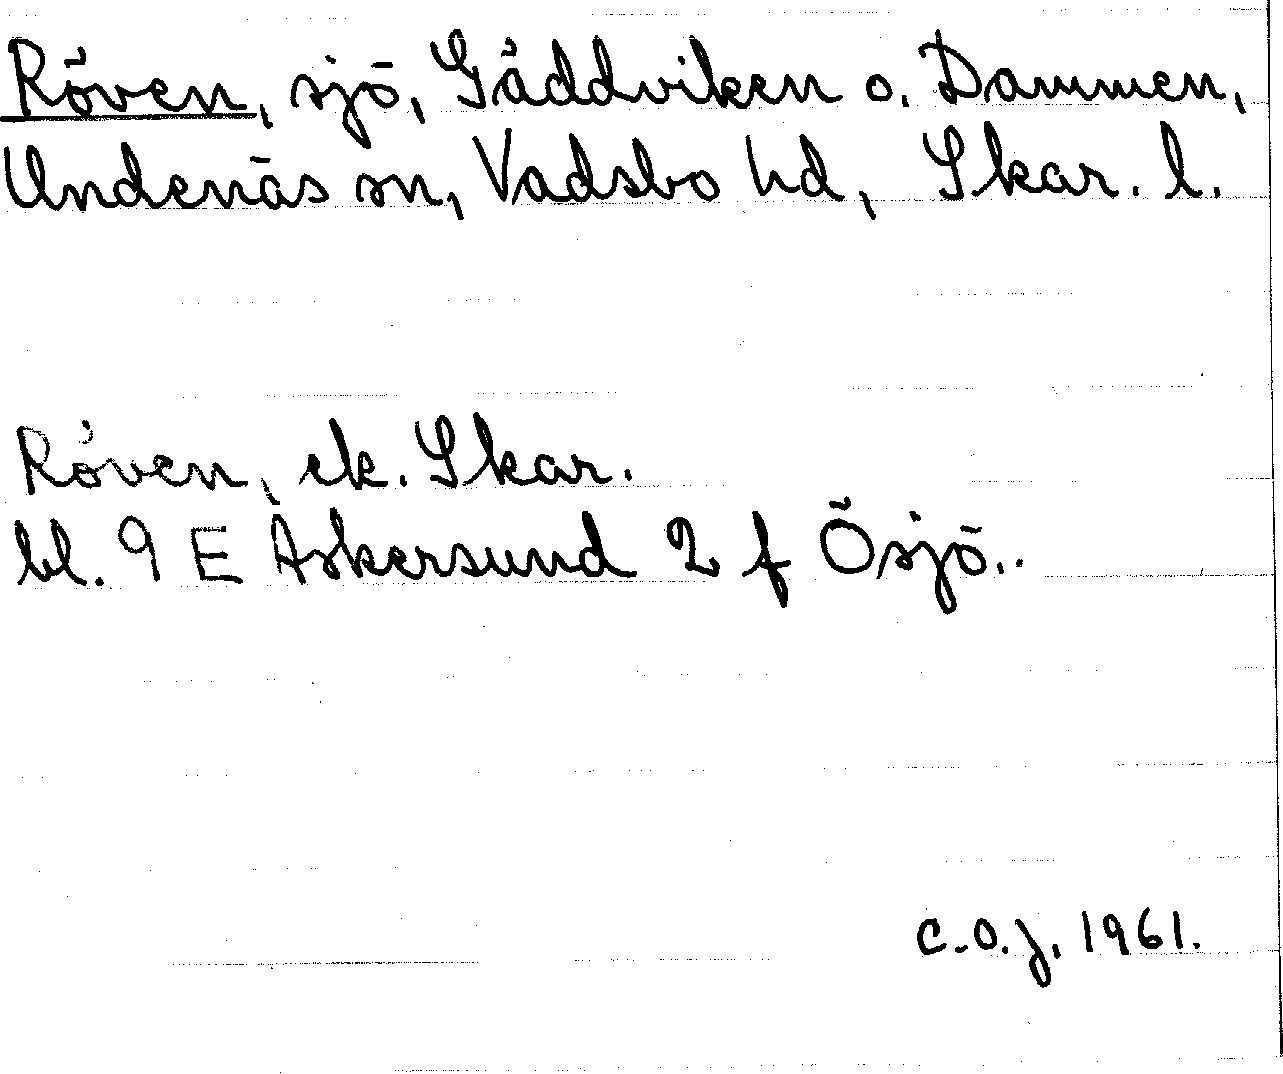 Röven, sjö, Gäddviken o. Dammen,
Undenäs sn, Vadsbo hd, Skar. l.
Röven, ek. Skar.
bl. 9 E Askersund 2 f Ösjö..
C.O.J. 1961.